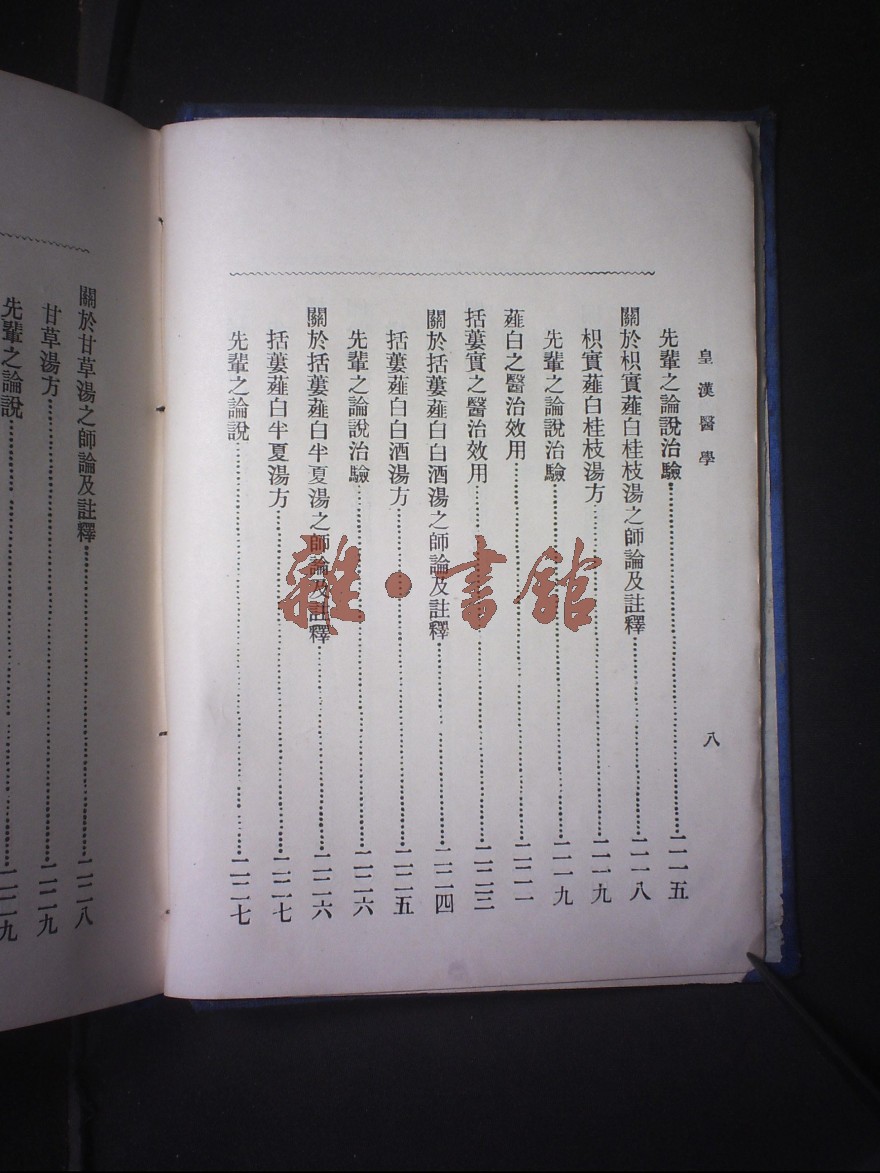 皇漢醫學 八
先輩之論說治驗 二一五
關於枳實薤白桂枝湯之師論及註釋 二一八
枳實薤白桂枝湯方 二一九
先輩之論說治驗 二一九
薤白之醫治效用 二二一
括蔞實之醫治效用 二二三
關於括蔞薤白白酒湯之師論及註釋 二二四
括蔞薤白白酒湯方 二二五
先輩之論說治驗 二二六
關於括蔞薤白半夏湯之師論及註釋 二二六
括蔞薤白半夏湯方 二二七
先輩之論說 二二七
關於甘草湯之師論及註釋 二二八
甘草湯方 二二九
先輩之論說 二二九
雜·書館